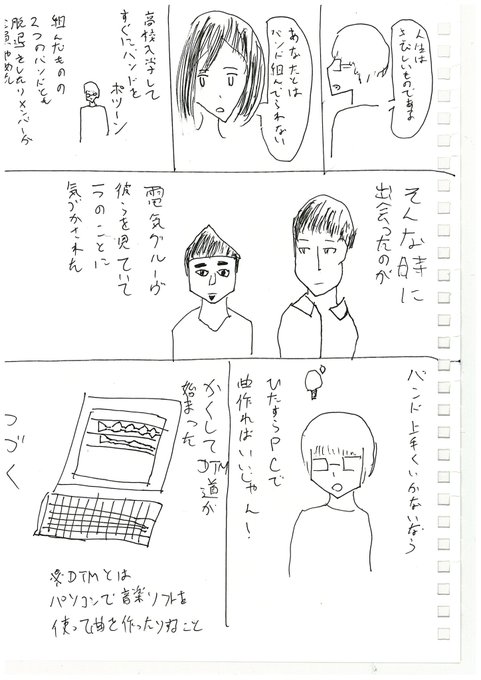 人生は
さびしいものですよ
あなたとは
バンド組んでられない
高校入学して
すぐにバンドを
組んだものの
2つのバンドとも
ポツーン
そんな時に
出会ったのが
電気グルーヴ
彼らを見ていて
一つのことに
気がかされた
バンド上手くいかないなら
ひたすらPCで
曲作ればいいじゃん!
かくしてDTM道が
始まった
つづく
※DTMとは
パソコンで音楽ソフトを
使って曲を作ったりすること